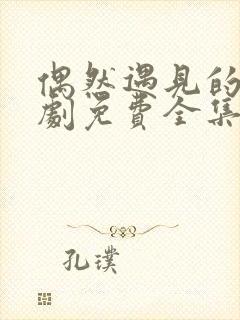 偶然遇见的
劇免費全集
孔璞